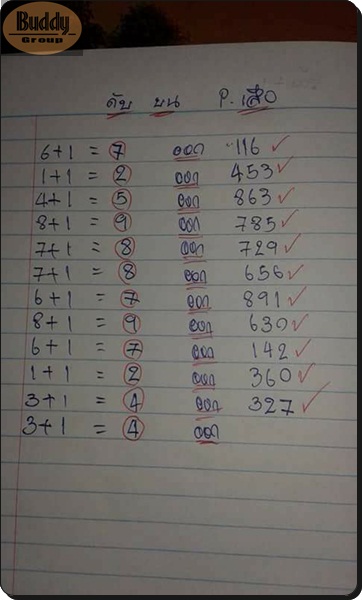 Buddy
Group
ดับ บน P.เสือ
6+1 = 7 ออก 116 ✓
1+1 = 2 ออก 453 ✓
4+1 = 5 ออก 863 ✓
8+1 = 9 ออก 785 ✓
7+1 = 8 ออก 729 ✓
7+1 = 8 ออก 656 ✓
6+1 = 7 ออก 891 ✓
8+1 = 9 ออก 630 ✓
6+1 = 7 ออก 142 ✓
1+1 = 2 ออก 360 ✓
3+1 = 4 ออก 327 ✓
3+1 = 4 ออก